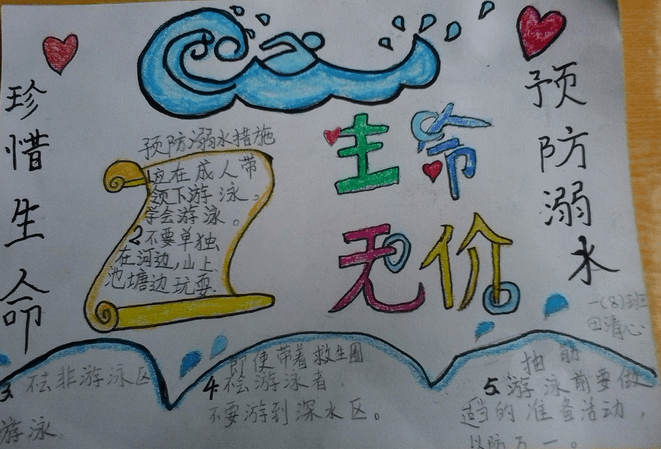 珍惜生命
预防溺水
生命
无价
预防溺水措施
1应在成人带
领下游泳。
学会游泳。
2不要单独
在河边,山上
池塘边玩耍.
一(8)班
田清心
3不去非游泳区
游泳
4即使带着救生圈
不会游泳者
不要游到深水区。
5游泳前要做
适当的准备活动,
以防万一。